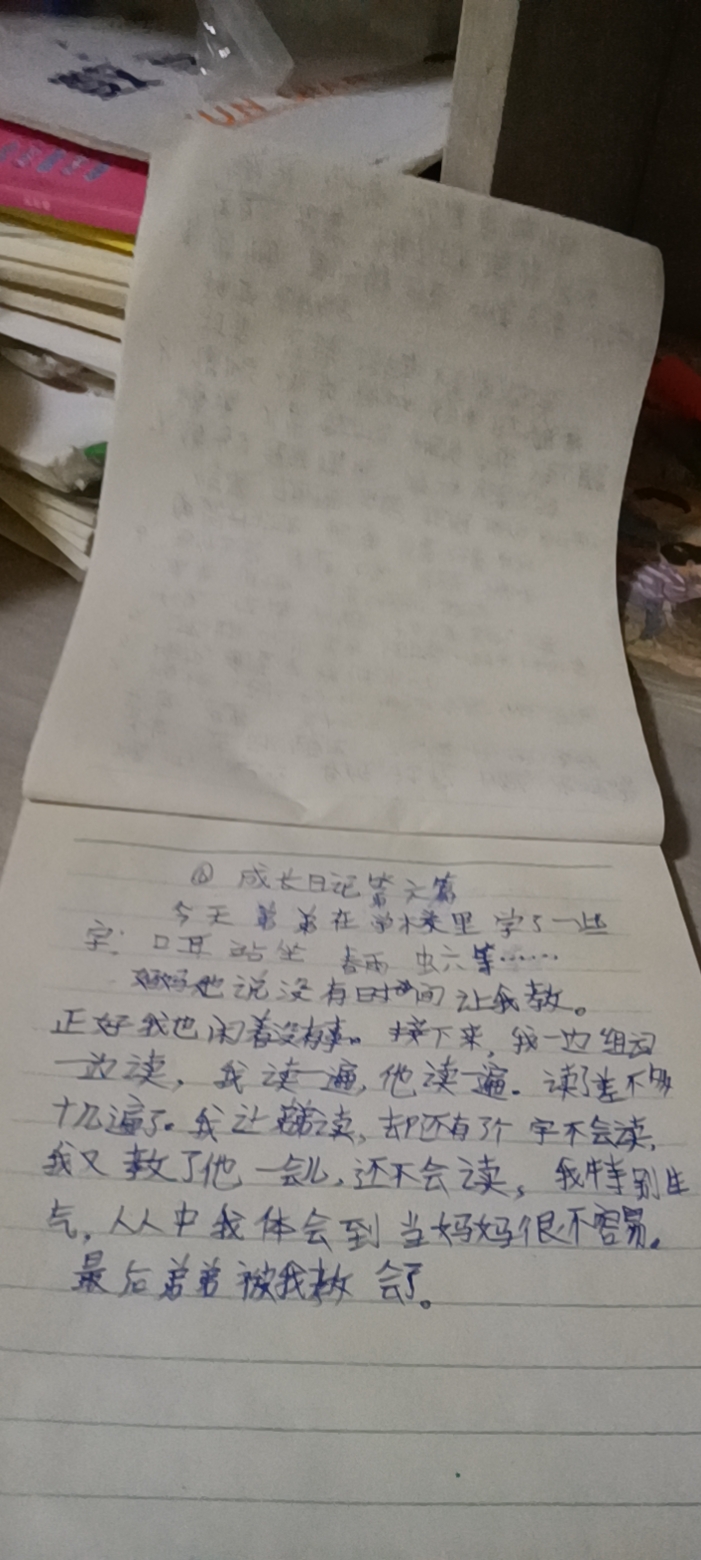 UN
⑥ 成长日记第六篇
今天弟弟在学校里学了一些
字: 口耳 站坐 春雨 虫六等……
妈妈她说没有时间让我教。
正好我也闲着没有事。接下来,我一边组词
一边读,我读一遍,他读一遍.读了差不够
十几遍了。我让弟弟读,却还有了个字不会读,
我又教了他一会儿,还不会读,我特别生
气,从中我体会到当妈妈很不容易。
最后弟弟被我教会了。